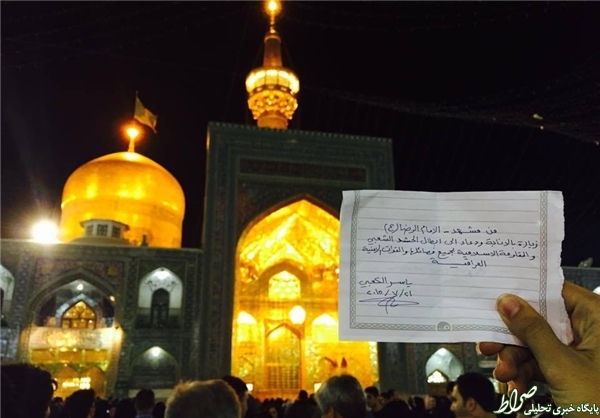 من مشهد - الامام الرضا (ع)
زيارة بالانابة ودعاء الى ابطال الحشد الشعبي
و المقاومة الاسلامية بجميع فصائلها والقوات الامنية
العراقيــة
ياسر الكعبي
٢٠١٥/٧/٢١
صراط
پایگاه خبری تحلیلی